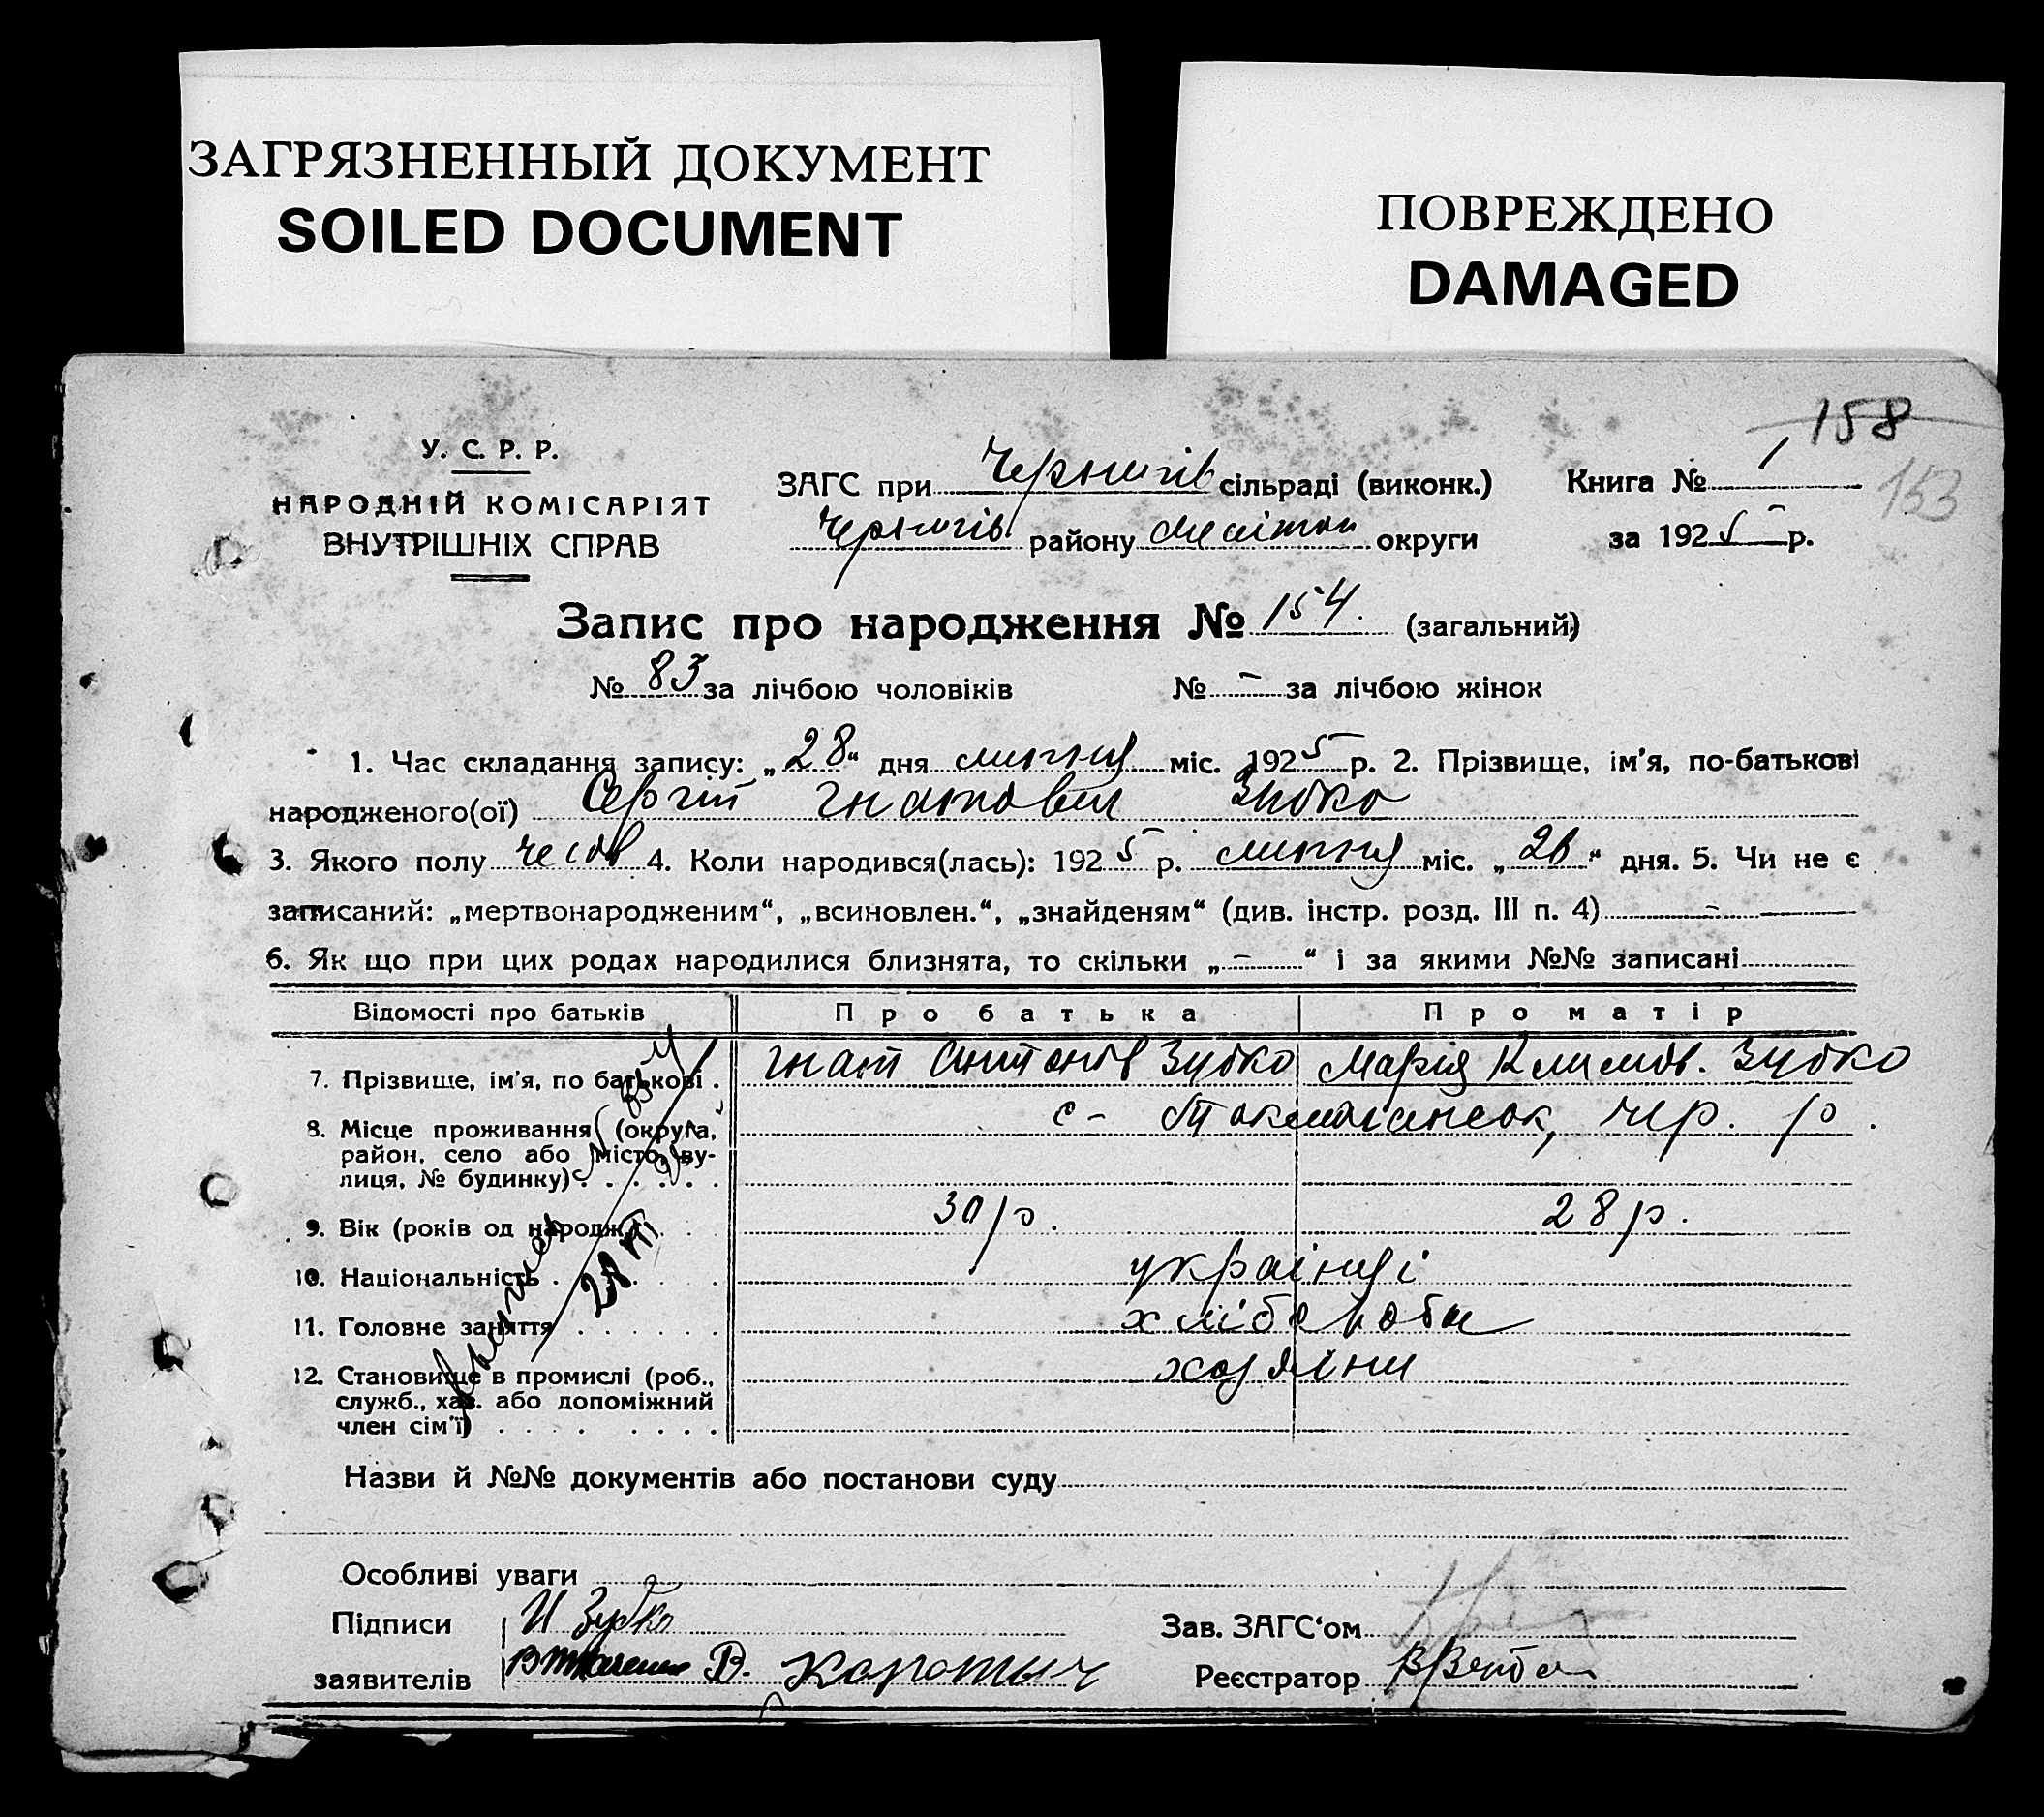 ЗАГРЯЗНЕННЫЙ ДОКУМЕНТ
SOILED DOCUMENT
ПОВРЕЖДЕНО
DAMAGED
158
153
У. С. Р. Р.
НАРОДНІЙ КОМІСАРІЯТ
ВНУТРІШНІХ СПРАВ
ЗАГС при Чернигів сільраді (виконк.)
Чернигів району Меліт округи
Книга № 1
за 1925 р.
Запис про народження № 154. (загальний)
№ 83 за лічбою чоловіків № - за лічбою жінок
1. Час складання запису: „28“ дня липня міс. 1925 р. 2. Прізвище, ім'я, по-батькові
народженого(ої) Сергій Гнатович Зубко
3. Якого полу чолов 4. Коли народився(лась): 1925 р. липня міс. „ “ дня. 5. Чи не є
записаний: „мертвонародженим“, „всиновлен.“, „знайденям“ (див. інстр. розд. III п. 4) -
6. Як що при цих родах народилися близнята, то скільки „-“ і за якими №№ записані
Відомості про батьків Про батька Про матір
7. Прізвище, ім'я, по батькові . Гнат Антонів Зубко Марія Климов. Зубко
8. Місце проживання (округа, район, село або місто, вулиця, № будинку) с- Токмачанськ, чер. р.
9. Вік (років од народж.) 30 р. 28 р.
10. Національність українці
11. Головне заняття хлібороби
12. Становище в промислі (роб., служб., хаз. або допоміжний член сім'ї) хазяїни
Назви й №№ документів або постанови суду
Особливі уваги
Підписи И Зубко Зав. ЗАГС'ом
заявителів В. Коротыч Реєстратор